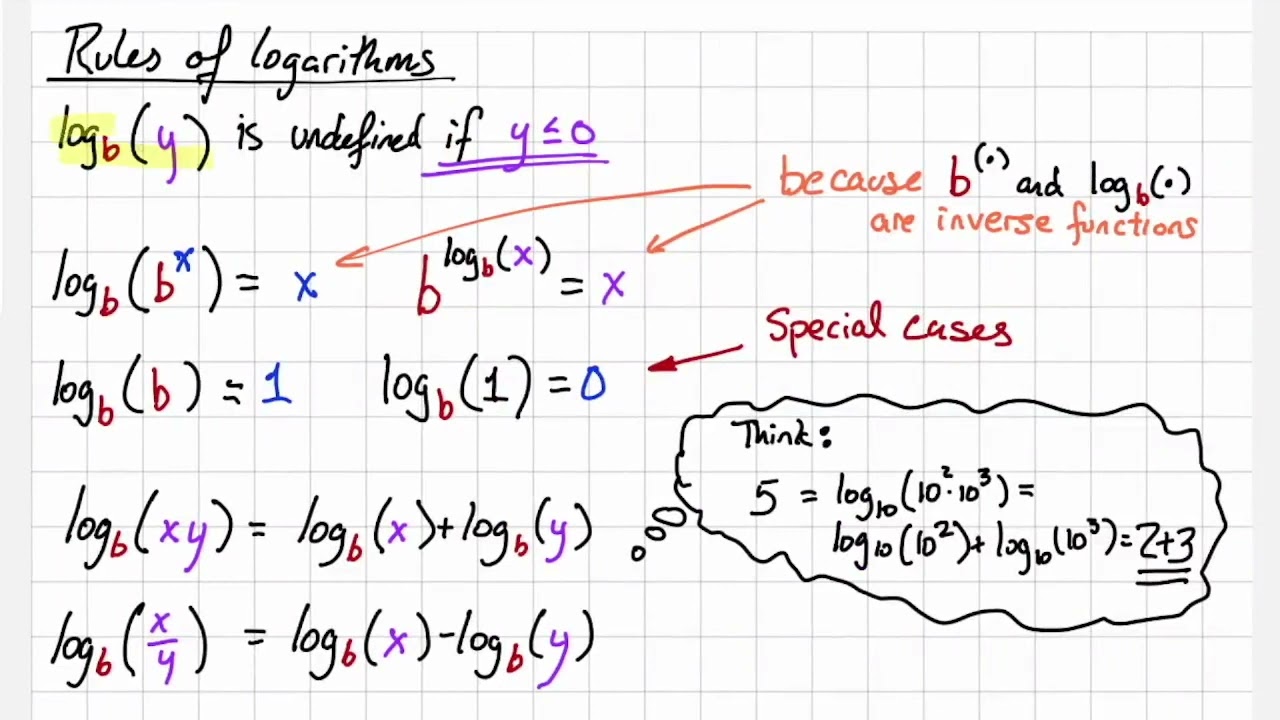 Rules of logarithms
log_b(y) is undefined if y ≤ 0
because b^(·) and log_b(·)
are inverse functions
log_b(b^x) = x    b^(log_b(x)) = x
Special cases
log_b(b) = 1    log_b(1) = 0
Think:
5 = log₁₀(10²·10³) =
log₁₀(10²)+log₁₀(10³)=2+3
log_b(xy) = log_b(x)+log_b(y)
log_b(x/y) = log_b(x)-log_b(y)